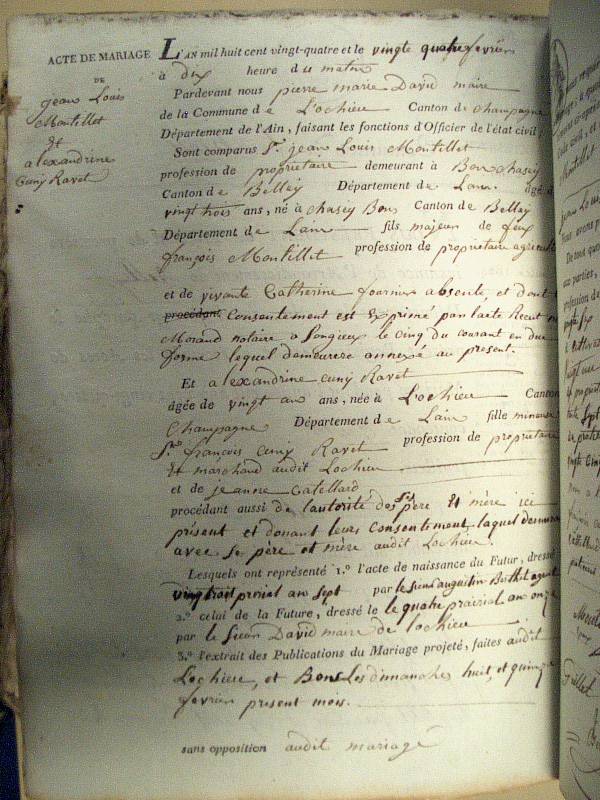 ACTE DE MARIAGE
DE
jean Louis
Montillet
Et
alexandrine
Cuny Ravet
L'AN mil huit cent vingt-quatre et le vingt quatre fevrier
à dix heure du matin
Pardevant nous pierre marie David maire
de la Commune de Lochieu Canton de Champagne
Département de l'Ain, faisant les fonctions d'Officier de l'état civil,
Sont comparus Sr. jean Louis Montillet
profession de proprietaire demeurant à Bon chasey
Canton de Belley Département de Lain âgé d
vingt trois ans, né à chasey Bons Canton de Belley
Département de Lain fils majeur de feu
françois Montillet profession de proprietaire agricult
et de vivante Catherine fournier absente, et dont
procédant Consentement est Exprimé par lacte Recut
Morand notaire à Songieux le cinq du courant en due
forme lequel demeurera annexé au present.
Et alexandrine cuny Ravet
âgée de vingt ans ans, née à Lochieu Canton
Champagne Département de Lain fille mineure
Sr. françois Cuny Ravet profession de proprietaire
Et marchand audit Lochieu
et de jeanne Catellard
procédant aussi de l'autorité des père Et mère ici
présent et donant leurs Consentement laquel demeure
avec Se père et mère audit Lochieu.
Lesquels ont représenté 1.º l'acte de naissance du Futur, dressé
an Sept par le Sieur augustin
2.º celui de la Future, dressé le le quatre prairial an onze
par le Sieur David maire de lochieu
3.º l'extrait des Publications du Mariage projeté, faites audit
Lochieu, et Bons Les dimanches huit, et quinze
fevrier present mois.
sans opposition audit mariage